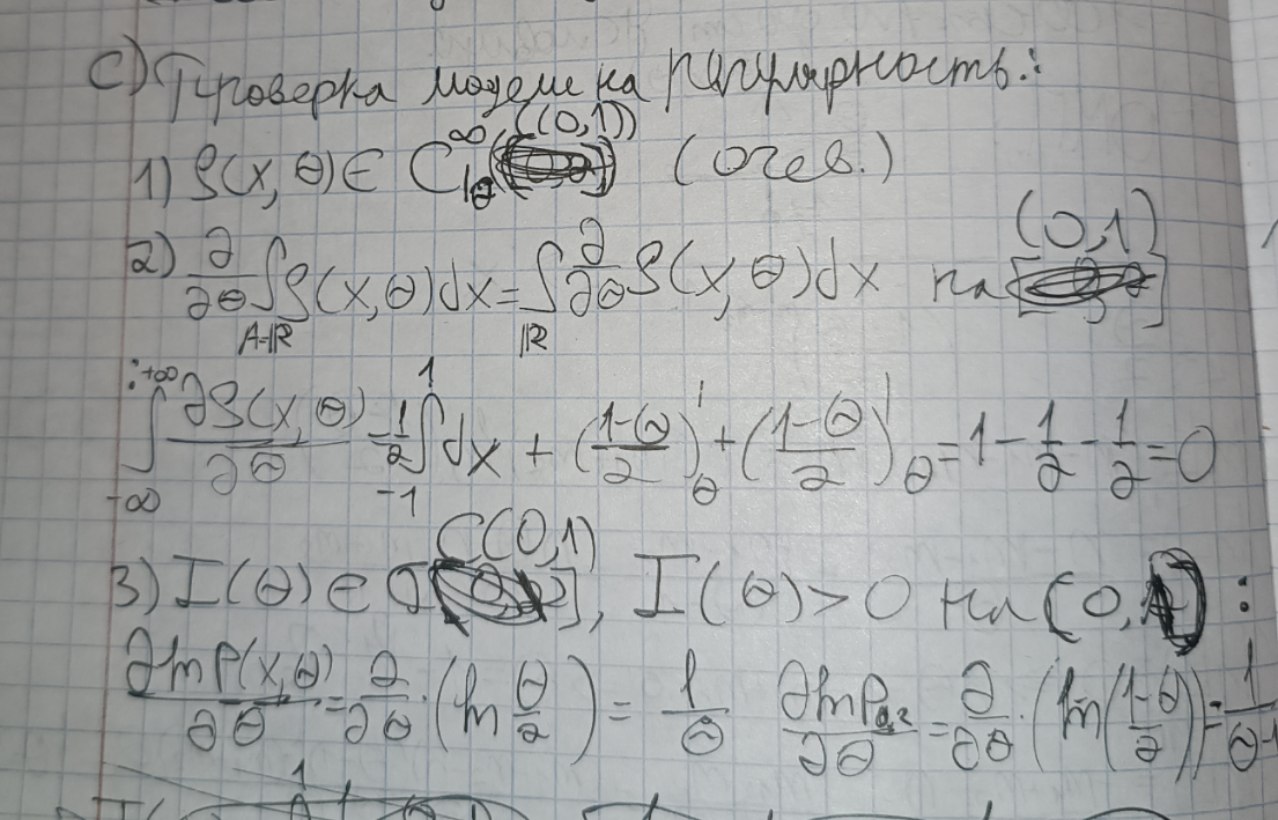 C) Проверка модели на регулярность:
1) ρ(x, θ) ∈ C^∞_{|θ}((0,1)) (очев.)
2) ∂/∂θ ∫_{A=ℝ} ρ(x, θ) dx = ∫_ℝ ∂/∂θ ρ(x, θ) dx на (0,1)
: ∫_{-∞}^{+∞} ∂ρ(x, θ)/∂θ = 1/2 ∫_{-1}^{1} dx + ((1-θ)/2)'_θ + ((1-θ)/2)'_θ = 1 - 1/2 - 1/2 = 0
3) I(θ) ∈ C(0,1), I(θ) > 0 на (0,1):
∂ln ρ(x, θ)/∂θ = ∂/∂θ · (ln θ/2) = 1/θ ∂ln ρ/∂θ = ∂/∂θ · (ln((1-θ)/2)) = 1/(θ-1)